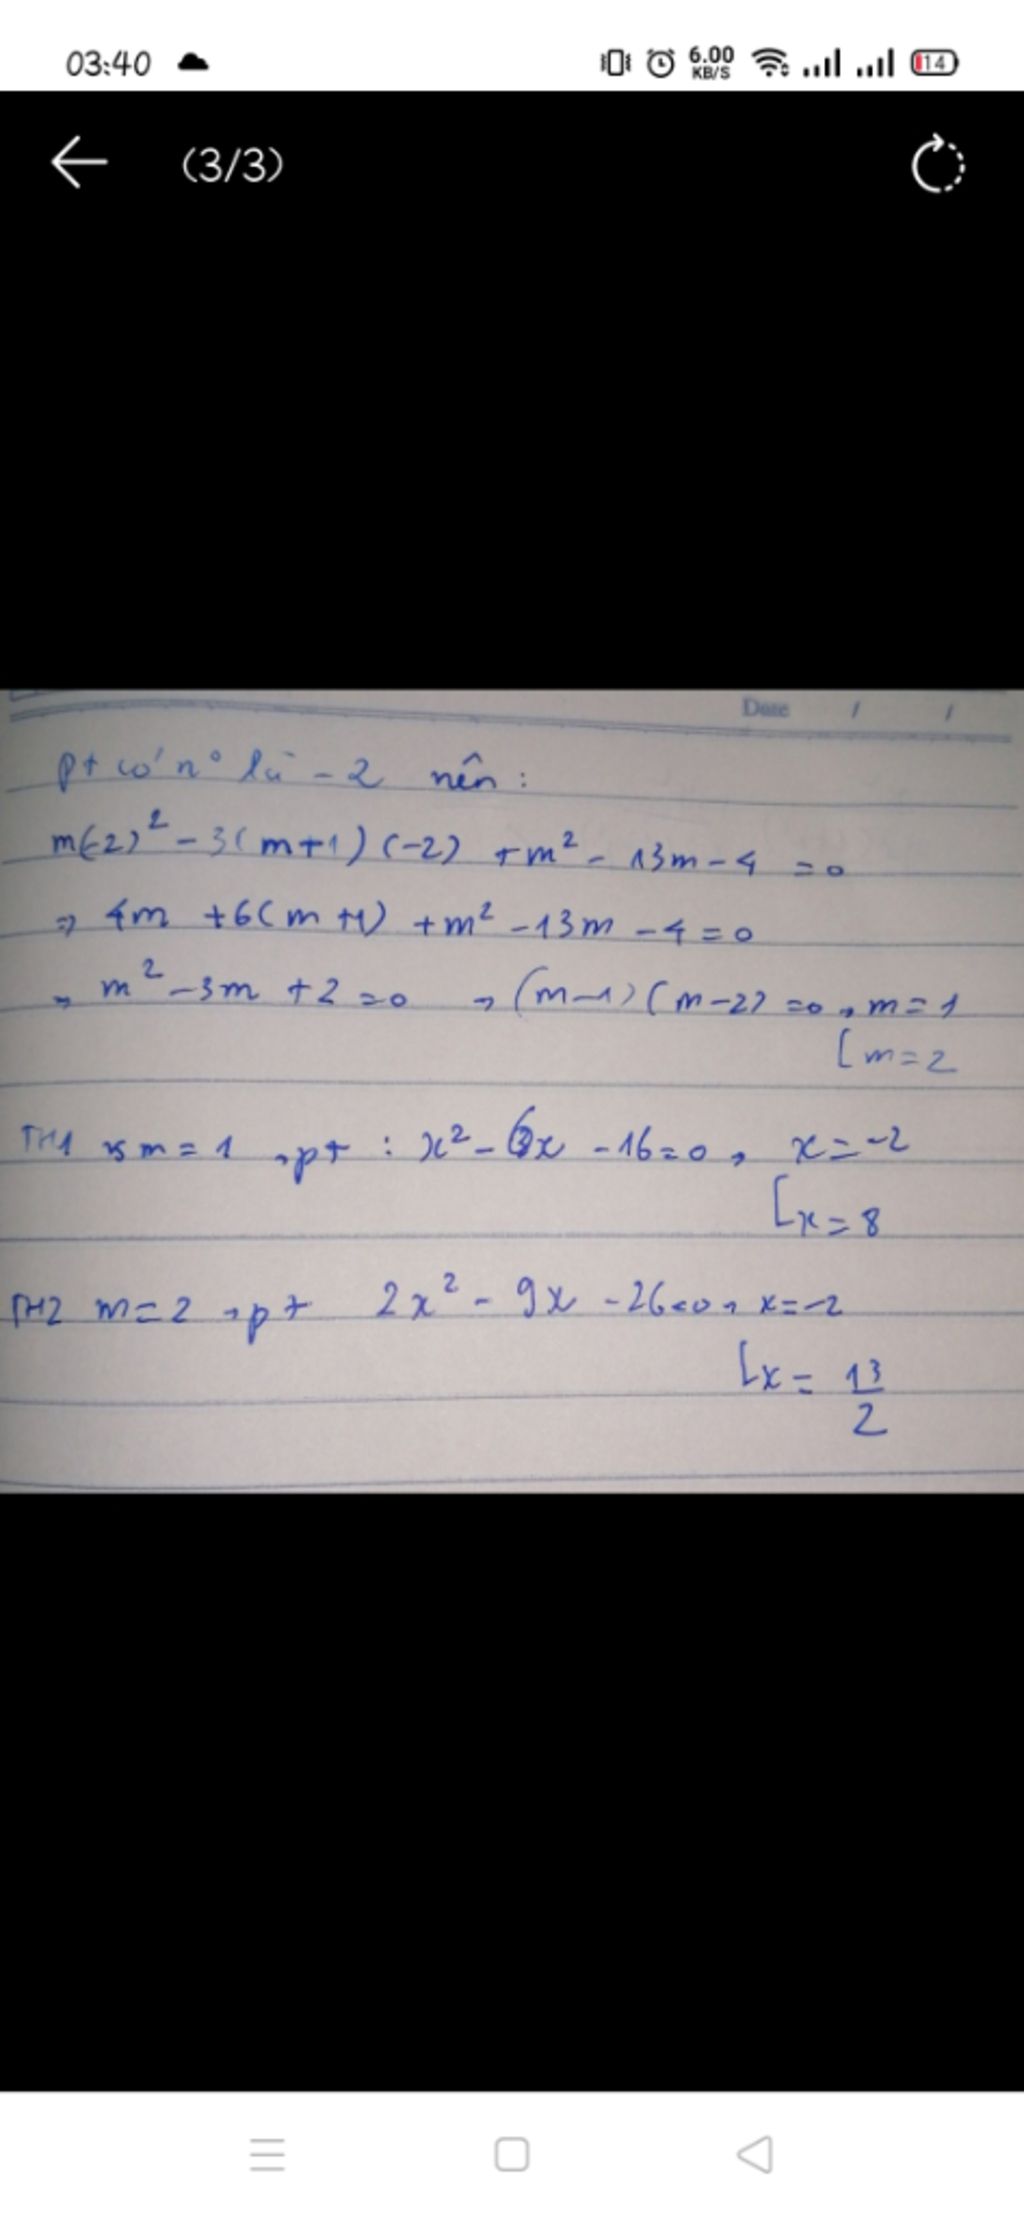 03:40
6.00 KB/S
14
(3/3)
Date / /
pt có n° là -2 nên :
m(-2)² - 3(m+1)(-2) + m² - 13m - 4 = 0
=> 4m + 6(m+1) + m² - 13m - 4 = 0
m² - 3m + 2 = 0 → (m-1)(m-2) = 0 → m = 1
[ m = 2
TH1 m = 1 → pt : x² - 6x - 16 = 0 → x = -2
[ x = 8
TH2 m = 2 → pt 2x² - 9x - 26 = 0 → x = -2
[ x = 13/2